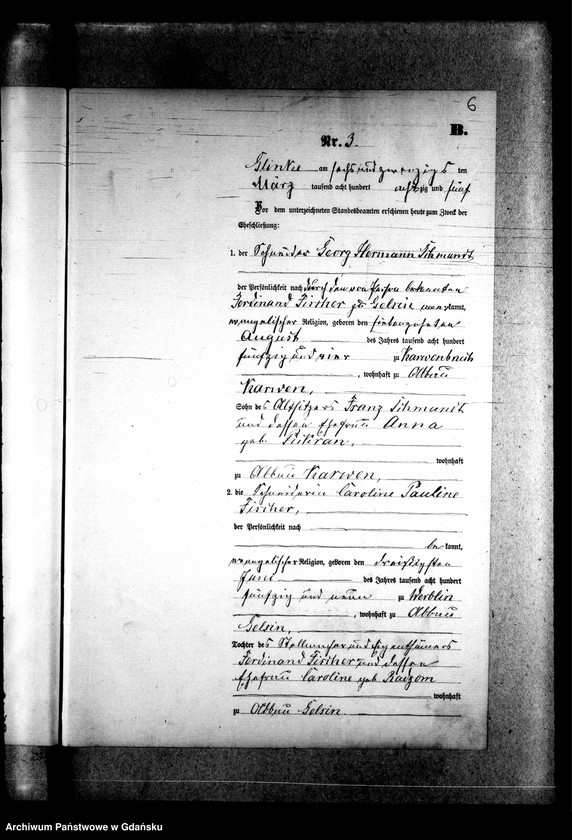 6
B.
Nr. 3.
Glinke am sechs und zwanzigs ten
März tausend acht hundert achtzig und fünf
Vor dem unterzeichneten Standesbeamten erschienen heute zum Zweck der
Eheschließung:
1. der Schneider Georg Hermann Schmandt
der Persönlichkeit nach durch den von Person bekannten
Ferdinand Fischer zu Gelsin anerkannt,
evangelischer Religion, geboren den siebenzehnten
August des Jahres tausend acht hundert
fünfzig und vier zu Karwenbruch
, wohnhaft zu Abbau
Karwen,
Sohn des Altsitzers Franz Schmandt
und dessen Ehefrau Anna
geb.
wohnhaft
zu Abbau Karwen,
2. die Schneiderin Caroline Pauline
Fischer,
der Persönlichkeit nach
be kannt,
evangelischer Religion, geboren den dreißigsten
Juni des Jahres tausend acht hundert
fünfzig und neun zu Werblin
, wohnhaft zu Abbau
Gelsin,
Tochter des Stellmacher und Eigenthümers
Ferdinand Fischer und dessen
Ehefrau Caroline geb. Radzom
wohnhaft
zu Abbau Gelsin.
Archiwum Państwowe w Gdańsku